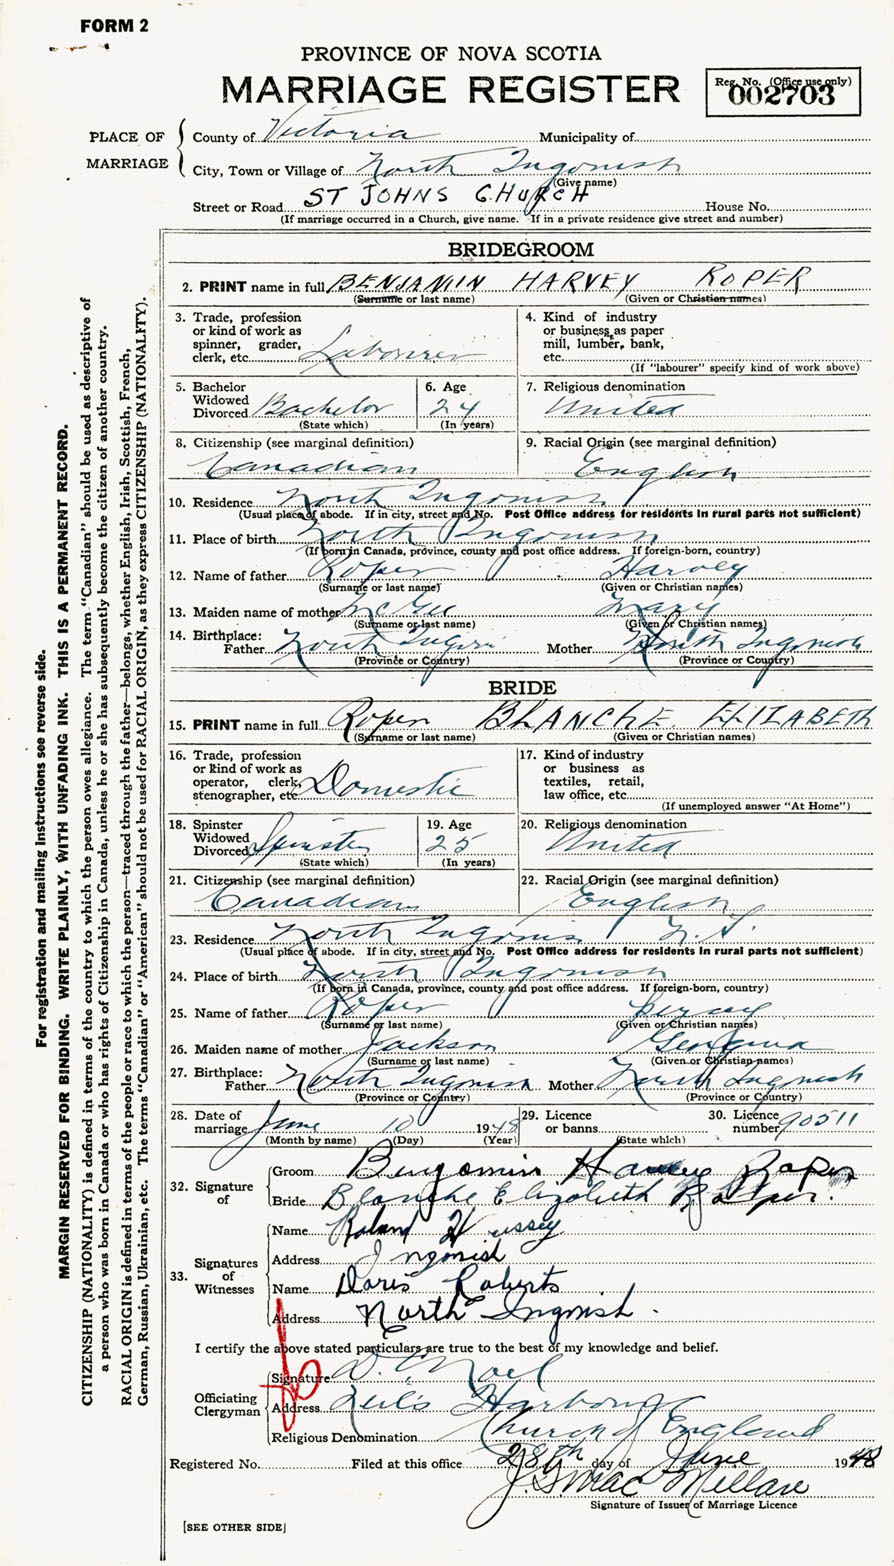 FORM 2
PROVINCE OF NOVA SCOTIA
MARRIAGE REGISTER
Reg. No. (Office use only)
002703
PLACE OF MARRIAGE
County of Victoria Municipality of
City, Town or Village of North Ingonish
(Give name)
Street or Road ST JOHNS CHURCH House No.
(If marriage occurred in a Church, give name. If in a private residence give street and number)
BRIDEGROOM
2. PRINT name in full BENJAMIN HARVEY ROPER
(Surname or last name) (Given or Christian names)
3. Trade, profession or kind of work as spinner, grader, clerk, etc. Labourer
4. Kind of industry or business as paper mill, lumber, bank, etc.
(If "labourer" specify kind of work above)
5. Bachelor Widowed Divorced Bachelor
(State which)
6. Age 24
(In years)
7. Religious denomination United
8. Citizenship (see marginal definition) Canadian
9. Racial Origin (see marginal definition) English
10. Residence North Ingonish
(Usual place of abode. If in city, street and No. Post Office address for residents in rural parts not sufficient)
11. Place of birth North Ingonish
(If born in Canada, province, county and post office address. If foreign-born, country)
12. Name of father Roper Harvey
(Surname or last name) (Given or Christian names)
13. Maiden name of mother McGee Mary
(Surname or last name) (Given or Christian names)
14. Birthplace:
Father North Mother North Ingonish
(Province or Country) (Province or Country)
BRIDE
15. PRINT name in full Roper BLANCHE ELIZABETH
(Surname or last name) (Given or Christian names)
16. Trade, profession or kind of work as operator, clerk, stenographer, etc. Domestic
17. Kind of industry or business as textiles, retail, law office, etc.
(If unemployed answer "At Home")
18. Spinster Widowed Divorced Spinster
(State which)
19. Age 25
(In years)
20. Religious denomination United
21. Citizenship (see marginal definition) Canadian
22. Racial Origin (see marginal definition) English
23. Residence North Ingonish N.S.
(Usual place of abode. If in city, street and No. Post Office address for residents in rural parts not sufficient)
24. Place of birth North Ingonish
(If born in Canada, province, county and post office address. If foreign-born, country)
25. Name of father Roper Percey
(Surname or last name) (Given or Christian names)
26. Maiden name of mother Jackson Georgina
(Surname or last name) (Given or Christian names)
27. Birthplace:
Father North Ingonish Mother North Ingonish
(Province or Country) (Province or Country)
28. Date of marriage June 10 1948
(Month by name) (Day) (Year)
29. Licence or banns
(State which)
30. Licence number 90511
32. Signature of
Groom Benjamin Harvey Roper
Bride Blanche Elizabeth Roper.
33. Signatures of Witnesses
Name Roland Hussey
Address Ingonish
Name Doris Roberts
Address North Ingonish.
I certify the above stated particulars are true to the best of my knowledge and belief.
Officiating Clergyman
Signature D. C. Noel
Address Neil's Harbour
Religious Denomination Church of England
Registered No. Filed at this office 28th day of June 1948
J. MacMillan
Signature of Issuer of Marriage Licence
[SEE OTHER SIDE]
For registration and mailing instructions see reverse side.
MARGIN RESERVED FOR BINDING. WRITE PLAINLY, WITH UNFADING INK. THIS IS A PERMANENT RECORD.
CITIZENSHIP (NATIONALITY) is defined in terms of the country to which the person owes allegiance. The term "Canadian" should be used as descriptive of
a person who was born in Canada or who has rights of Citizenship in Canada, unless he or she has subsequently become the citizen of another country.
RACIAL ORIGIN is defined in terms of the people or race to which the person—traced through the father—belongs, whether English, Irish, Scottish, French,
German, Russian, Ukrainian, etc. The terms "Canadian" or "American" should not be used for RACIAL ORIGIN, as they express CITIZENSHIP (NATIONALITY).